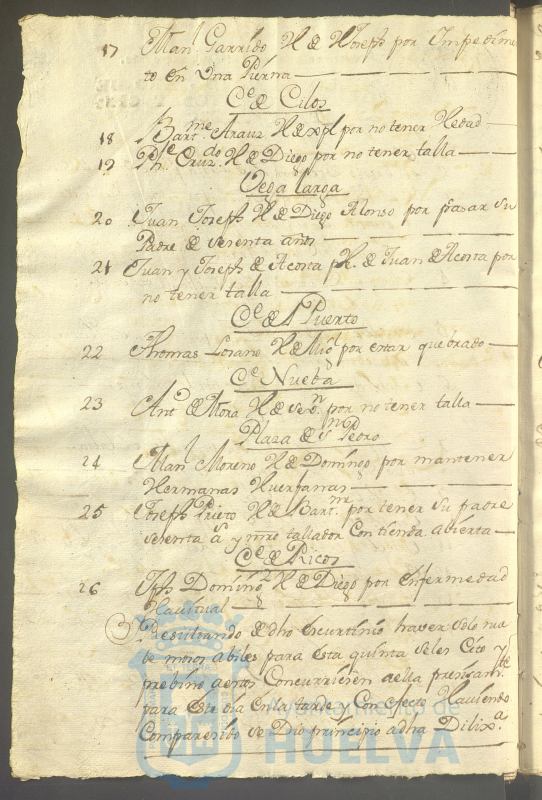 17 Man.l Garrido H de Joseph por Impedime
to en Una Pierna
C.e de Cilos
18 Bart.me Arauz H de Xpl por no tener Hedad
19 Ph.e Cruz.do H de Diego por no tener talla
Vega Larga
20 Juan Joseph H de Diego Alonso por pasar su
Padre de sesenta años
21 Juan y Joseph de Acosta H. de Juan de Acosta por
no tener talla
C.e del Puerto
22 Thomas Lorano H de Mig.l por estar quebrado
C.e Nueba
23 Ant.o de Mora H de por no tener talla
Plaza de S.n Pedro
24 Man.l Moreno H de Domingo por mantener
Hermanas Huerfanas
25 Joseph Prieto H de Bart.me por tener su padre
sesenta a.s y mro tallador con tienda abierta
C.e de Ricos
26 Jph Doming.z H de Diego por enfermedad
Havitual
Y Resultando de dho Escrutinio haver solo nue
be mozos abiles para esta quinta se les cito y
prebino a estos Concurriesen a ella precisam.te
para este dia en la tarde y Con efecto Haviendo
Comparesido se Dio principio a dha Dilix.a
Ayuntamiento de
HUELVA